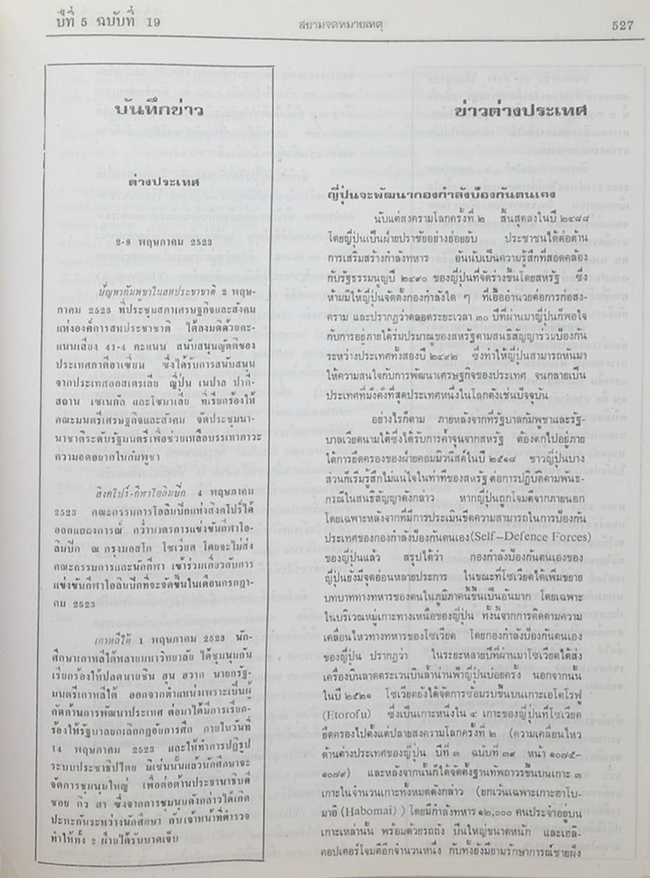 ปีที่ 5 ฉบับที่ 19
สยามจดหมายเหตุ
527
บันทึกข่าว
ต่างประเทศ
2-8 พฤษภาคม 2523
ปัญหากัมพูชาในสหประชาชาติ 2 พฤษ-
ภาคม 2523 ที่ประชุมสภาเศรษฐกิจและสังคม
แห่งองค์การสหประชาชาติ ได้ลงมติด้วยคะ-
แนนเสียง 41-4 คะแนน สนับสนุนญัตติของ
ประเทศภาคีอาเซียน ซึ่งได้รับการสนับสนุน
จากประเทศออสเตรเลีย ญี่ปุ่น เนปาล ปากี-
สถาน เซเนกัล และโซมาเลีย ที่เรียกร้องให้
คณะมนตรีเศรษฐกิจและสังคม จัดประชุมนา-
นาชาติระดับรัฐมนตรีเพื่อช่วยเหลือบรรเทาภาวะ
ความอดอยากในกัมพูชา
สิงคโปร์-กีฬาโอลิมปิก 4 พฤษภาคม
2523 คณะกรรมการโอลิมปิกแห่งสิงคโปร์ได้
ออกแถลงการณ์ คว่ำบาตรการแข่งขันกีฬาโอ-
ลิมปิก ณ กรุงมอสโก โซเวียต โดยจะไม่ส่ง
คณะกรรมการและนักกีฬา เข้าร่วมเกี่ยวกับการ
แข่งขันกีฬาโอลิมปิกที่จะจัดขึ้นในเดือนกรกฎา-
คม 2523
เกาหลีใต้ 1 พฤษภาคม 2523 นัก-
ศึกษาเกาหลีใต้หลายมหาวิทยาลัย ได้ชุมนุมกัน
เรียกร้องให้ปลดนายชิน ฮุน ฮวาก นายกรัฐ-
มนตรีเกาหลีใต้ ออกจากตำแหน่งเพราะเป็นผู้
กีดกันการพัฒนาประเทศ ต่อมาได้มีการเรียก-
ร้องให้รัฐบาลยกเลิกกฎอัยการศึก ภายในวันที่
14 พฤษภาคม 2523 และให้ทำการปฏิรูป
ระบบประชาธิปไตย มิเช่นนั้นแล้วนักศึกษาจะ
จัดการชุมนุมใหญ่ เพื่อต่อต้านประธานาธิบดี
ชอย กิว ฮา ซึ่งจากการชุมนุมดังกล่าวได้เกิด
ปะทะกันระหว่างนักศึกษา กับเจ้าหน้าที่ตำรวจ
ทำให้ทั้ง 2 ฝ่ายได้รับบาดเจ็บ
ข่าวต่างประเทศ
ญี่ปุ่นจะพัฒนากองกำลังป้องกันตนเอง
นับแต่สงครามโลกครั้งที่ ๒ สิ้นสุดลงในปี ๒๔๘๘
โดยญี่ปุ่นเป็นฝ่ายปราชัยอย่างย่อยยับ ประชาชนได้ต่อต้าน
การเสริมสร้างกำลังทหาร อันนับเป็นความรู้สึกที่สอดคล้อง
กับรัฐธรรมนูญปี ๒๔๙๐ ของญี่ปุ่นที่จัดร่างขึ้นโดยสหรัฐ ซึ่ง
ห้ามมิให้ญี่ปุ่นจัดตั้งกองกำลังใด ๆ ที่เอื้ออำนวยต่อการก่อสง-
คราม และปรากฏว่าตลอดระยะเวลา ๓๐ ปีที่ผ่านมาญี่ปุ่นก็พอใจ
กับการอยู่ภายใต้ร่มปรมาณูของสหรัฐตามสนธิสัญญาร่วมป้องกัน
ระหว่างประเทศทั้งสองปี ๒๔๙๒ ซึ่งทำให้ญี่ปุ่นสามารถหันมา
ให้ความสนใจกับการพัฒนาเศรษฐกิจของประเทศ จนกลายเป็น
ประเทศที่มั่งคั่งที่สุดประเทศหนึ่งในโลกดังเช่นปัจจุบัน
อย่างไรก็ตาม ภายหลังจากที่รัฐบาลกัมพูชาและรัฐ-
บาลเวียดนามใต้ซึ่งได้รับการค้ำจุนจากสหรัฐ ต้องตกไปอยู่ภาย
ใต้การยึดครองของฝ่ายคอมมิวนิสต์ในปี ๒๕๑๘ ชาวญี่ปุ่นบาง
ส่วนก็เริ่มรู้สึกไม่แน่ใจในท่าทีของสหรัฐต่อการปฏิบัติตามพันธ-
กรณีในสนธิสัญญาดังกล่าว หากญี่ปุ่นถูกโจมตีจากภายนอก
โดยเฉพาะหลังจากที่มีการประเมินขีดความสามารถในการป้องกัน
ประเทศของกองกำลังป้องกันตนเอง(Self-Defence Forces)
ของญี่ปุ่นแล้ว สรุปได้ว่า กองกำลังป้องกันตนเองของ
ญี่ปุ่นยังมีจุดอ่อนหลายประการ ในขณะที่โซเวียตได้เพิ่มขยาย
บทบาททางทหารของตนในภูมิภาคนี้ขึ้นเป็นอันมาก โดยเฉพาะ
ในบริเวณหมู่เกาะทางเหนือของญี่ปุ่น ทั้งนี้จากการติดตามความ
เคลื่อนไหวทางทหารของโซเวียต โดยกองกำลังป้องกันตนเอง
ของญี่ปุ่น ปรากฏว่า ในระยะหลายปีที่ผ่านมาโซเวียตได้ส่ง
เครื่องบินลาดตระเวนบินล้ำน่านฟ้าญี่ปุ่นบ่อยครั้ง นอกจากนั้น
ในปี ๒๕๒๑ โซเวียตยังได้จัดการซ้อมรบขึ้นบนเกาะเอโตโรฟู
(Etorofu) ซึ่งเป็นเกาะหนึ่งใน ๔ เกาะของญี่ปุ่นที่โซเวียต
ยึดครองไปตั้งแต่ปลายสงครามโลกครั้งที่ ๒ (ความเคลื่อนไหว
ด้านต่างประเทศของญี่ปุ่น ปีที่ ๓ ฉบับที่ ๓๙ หน้า ๑๐๗๕-
๑๐๗๙) และหลังจากนั้นก็ได้จัดตั้งฐานทัพถาวรขึ้นบนเกาะ ๓
เกาะในจำนวนเกาะทั้งหมดดังกล่าว (ยกเว้นเฉพาะเกาะฮาโบ-
มาอิ (Habomai) ) โดยมีกำลังทหาร ๑๒,๐๐๐ คนประจำอยู่บน
เกาะเหล่านั้น พร้อมด้วยรถถัง ปืนใหญ่ขนาดหนัก และเฮลิ-
คอปเตอร์โจมตีอีกจำนวนหนึ่ง กับทั้งยังมียามรักษาการณ์ชายฝั่ง